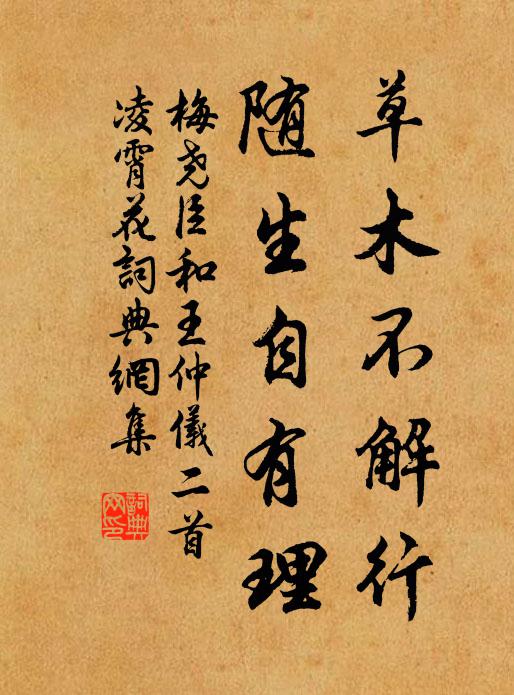 草木不解行
随生自有理
梅尧臣和王仲儀二首
凌霄花詞典網集
詞典网印